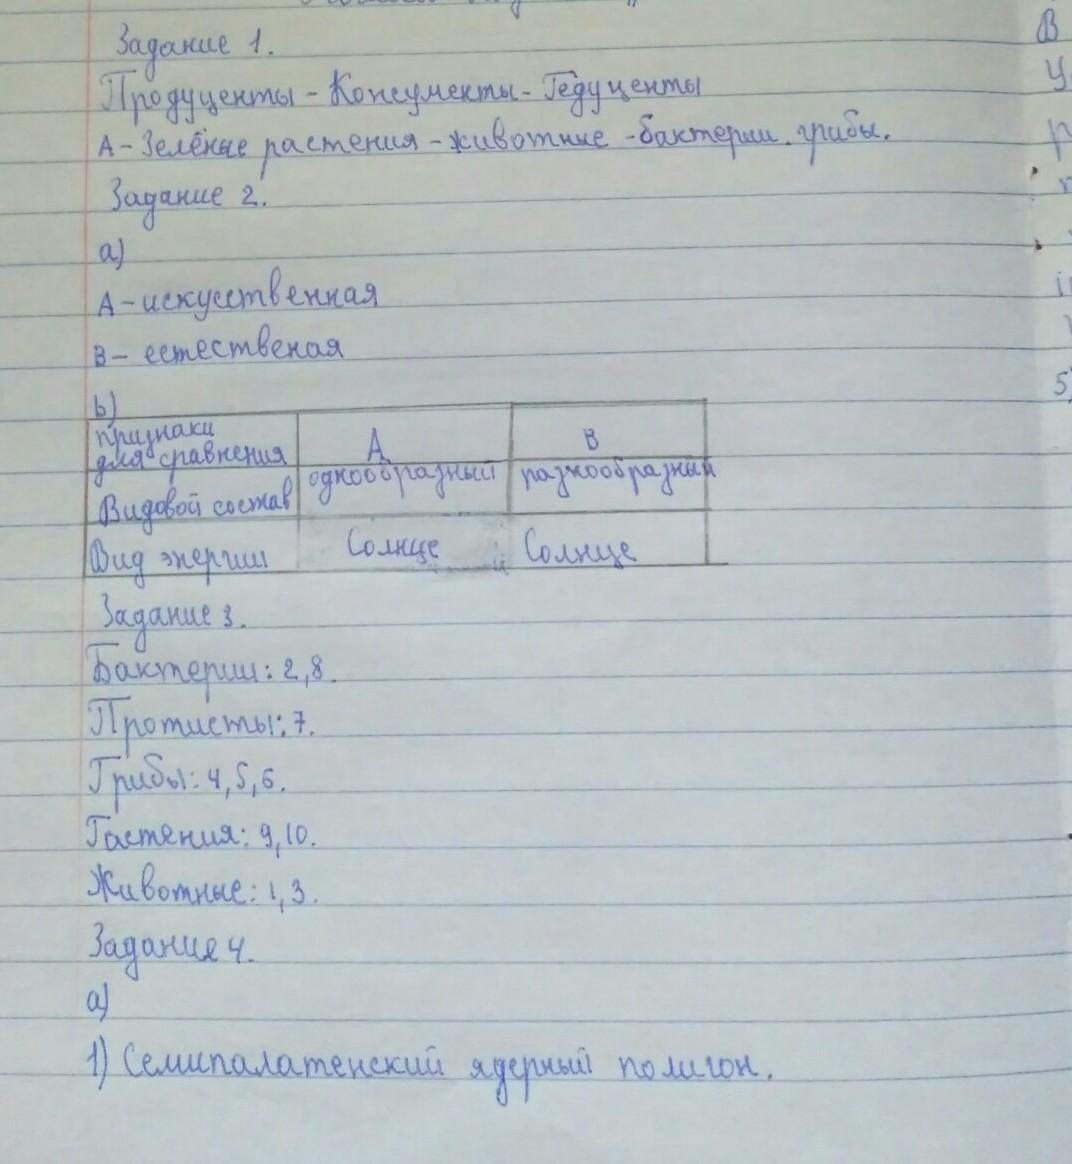 Задание 1.
Продуценты - Консументы - Редуценты
А - Зелёные растения - животные - бактерии. грибы.
Задание 2.
a)
А - искусственная
В - естественая
b)
признаки для сравнения А В
Видовой состав однообразный разнообразный
Вид энергии Солнце Солнце
Задание 3.
Бактерии: 2,8.
Протисты: 7.
Грибы: 4,5,6.
Растения: 9,10.
Животные: 1,3.
Задание 4.
a)
1) Семипалатенский ядерный полигон.